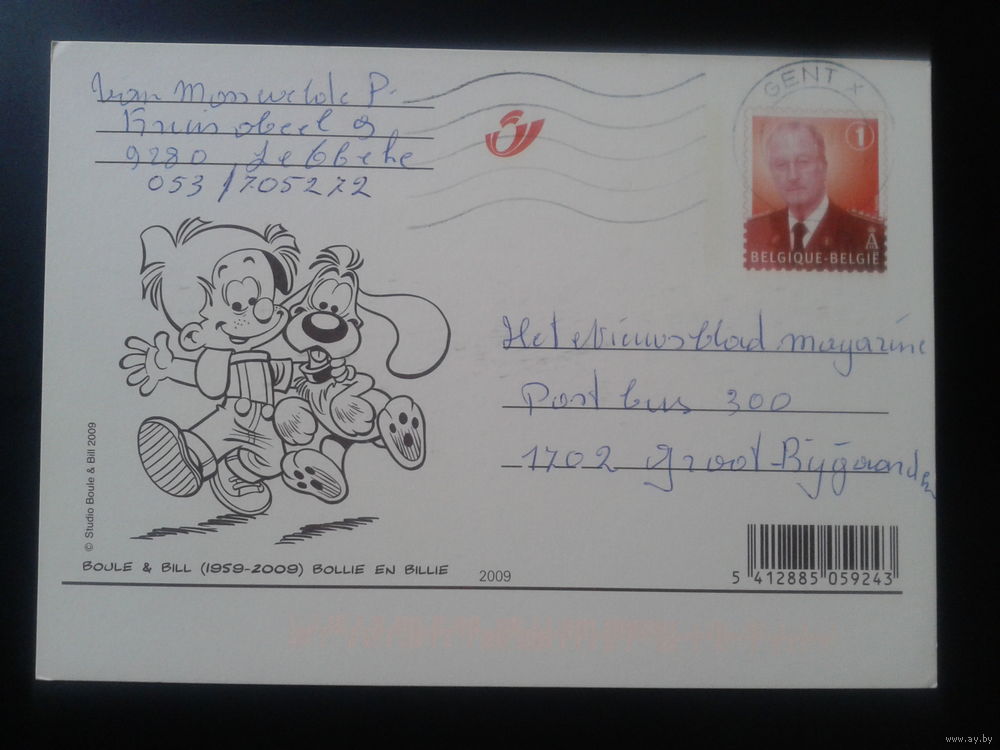 Van P.
9
9280 Lebbeke
053/705272
GENT X
1
BELGIQUE-BELGIË
Het Nieuwsblad magazine
Postbus 300
1702 Groot-Bijgaarden
© Studio Boule & Bill 2009
BOULE & BILL (1959-2009) BOLLIE EN BILLIE
2009
5 412885 059243
www.ay.by